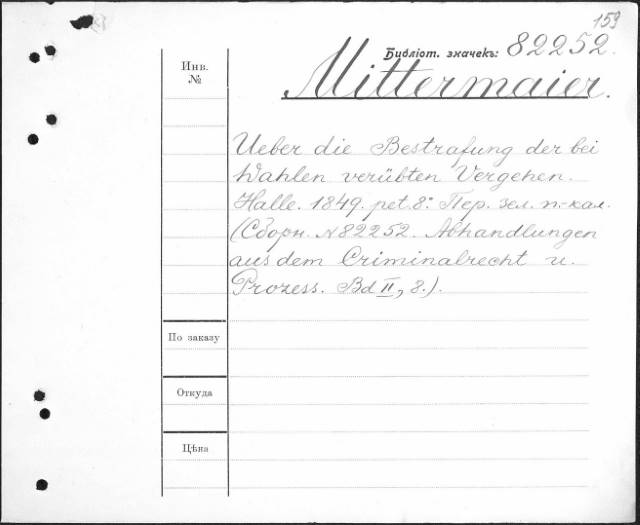 159
Библіот. значекъ: 82252.
Инв.
№
Mittermaier.
Ueber die Bestrafung der bei
Wahlen verübten Vergehen.
Halle. 1849. pet. 8º Пер. зел. п.-кал.
(Сборн. №82252. Abhandlungen
aus dem Criminalrecht u.
Prozess. Bd II, 8.).
По заказу
Откуда
Цѣна